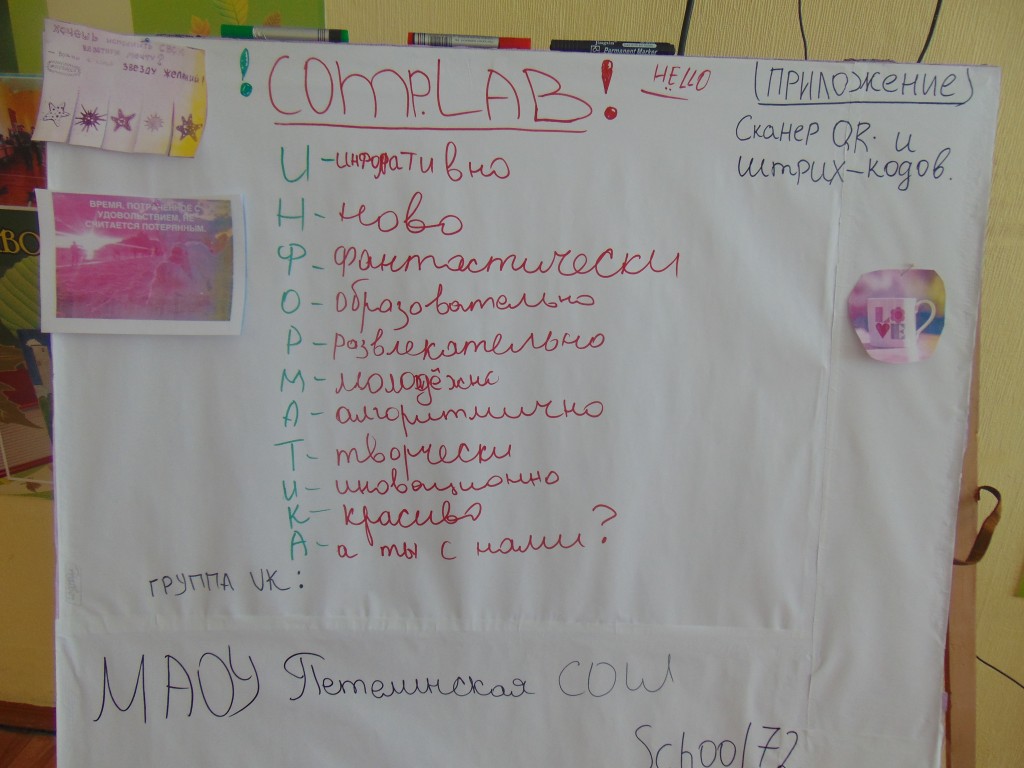 ХОЧЕШЬ
ЗВЕЗДУ ЖЕЛАНИЙ!
! COMP.LAB !
HELLO
(ПРИЛОЖЕНИЕ)
СКАНЕР QR. и
ШТРИХ-КОДОВ.
И - информативно
Н - ново
Ф - фантастически
О - образовательно
Р - развлекательно
М - молодёжно
А - алгоритмично
Т - творчески
И - иновационно
К - красиво
А - а ты с нами?
ВРЕМЯ, ПОТРАЧЕННОЕ С
УДОВОЛЬСТВИЕМ, НЕ
СЧИТАЕТСЯ ПОТЕРЯННЫМ.
LO
VE
ГРУППА VK:
МАОУ Петелинская СОШ
School72
Permanent Marker